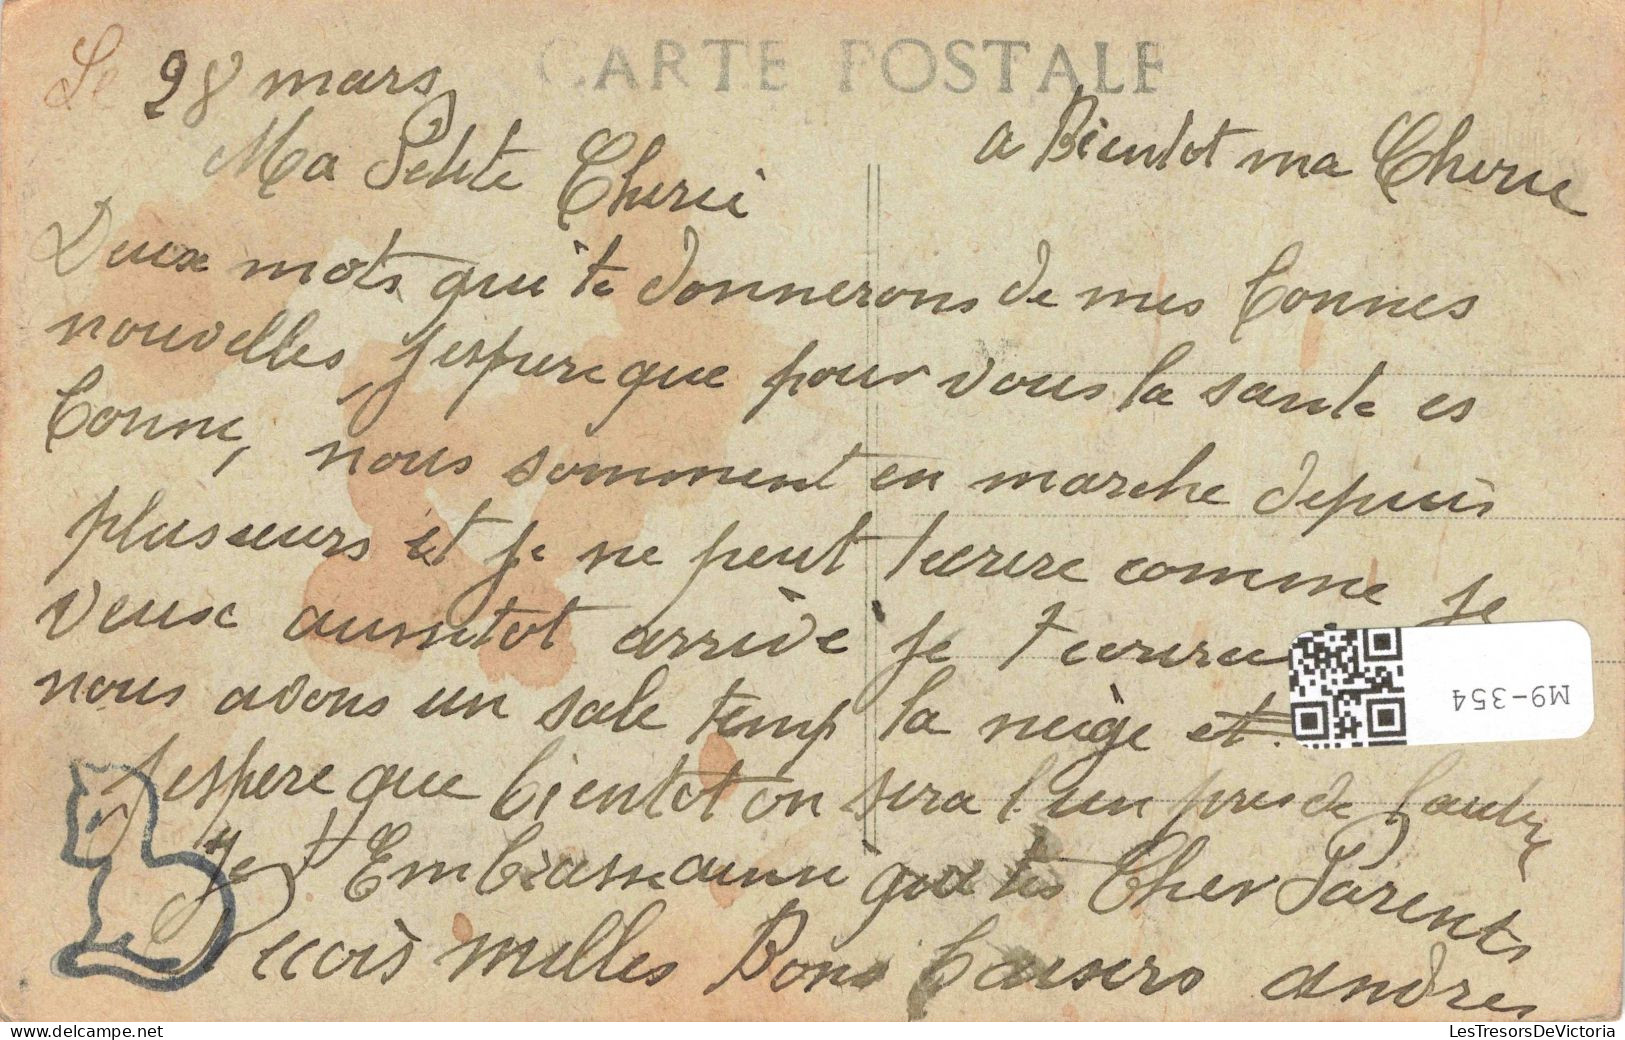 CARTE POSTALE
Le 28 mars
Ma Petite Cherie
a Bientot ma Cherie
Deux mots qui te donnerons de mes bonnes
nouvelles j'espere que pour vous la sante es
bonne, nous somment en marche depuis
plusieurs et je ne peut t'ecrire comme je
veux aussitot arrivé je t'ecrirai
nous avons un sale temp la neige et
j'espere que bientot on sera l'un pres de l'autre
Je t'Embrasse ainsi que tes Cher Parents
Recois milles Bons baisers andres
M9-354
LesTresorsDeVictoria.com